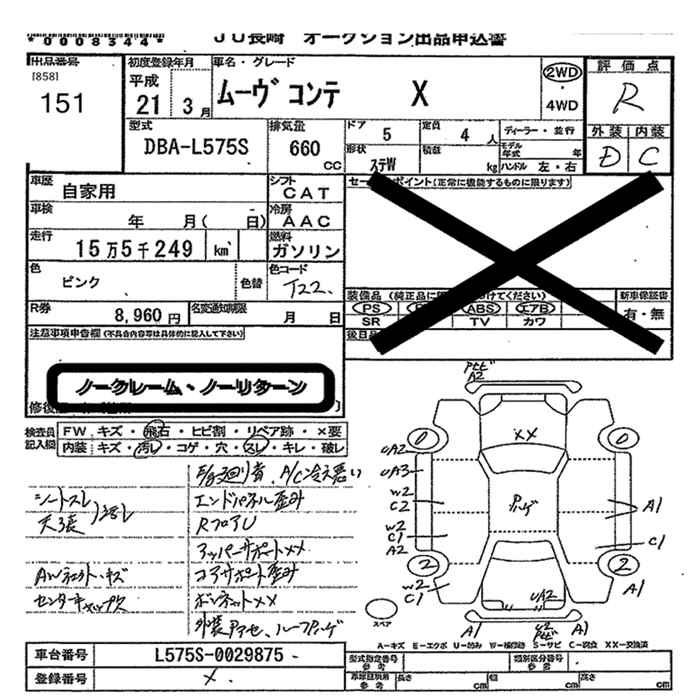 *0008344*
JU長崎 オークション出品申込書
出品番号
[858]
151
初度登録年月
平成
21年 3月
車名・グレード
ムーヴ コンテ X
2WD
4WD
評価点
R
外装 内装
D C
型式
DBA-L575S
排気量
660
CC
ドア 5
定員 4 人
ディーラー・並行
形状
ステW
積載 kg
モデル年式 年
ハンドル 左・右
車歴
自家用
シフト
CAT
セー ポイント (正常に機能するものに限ります)
車検
年 月( 日)
冷房
AAC
走行
15万5千249 km
燃料
ガソリン
色
ピンク
色替
色コード
T22
装備品 (純正品に けてください)
新車保証書
有・無
PS ABS エアB
SR TV カワ
R券
8,960円
名変通知期限
月 日
後日
注意事項申告欄 (不具合内容等は具体的に記入して下さい)
ノークレーム・ノーリターン
修復歴
検査員
記入欄
FW キズ・飛石・ヒビ割・リペア跡・×要
内装 キズ・汚レ・コゲ・穴・スレ・キレ・破レ
A/C冷え悪い
シートスレ
天張 汚レ
エンドパネル歪み
RフロアU
アッパーサポート××
AWキズ
コアサポート歪み
センターキャップ欠
ボンネット××
ピンク
××
A2
UA2
UA3
W2
C2
W2
C1
A2
W2
C1
0
0
2
2
A1
C1
A1
UA2
A1
A1
スペア
A=キズ E=エクボ U=凹み W=補修跡 S=サビ C=腐食 XX=交換済
車台番号
L575S-0029875
登録番号
×
型式指定番号
参考
類別区分番号
参考
長さ cm
幅 cm
高さ cm